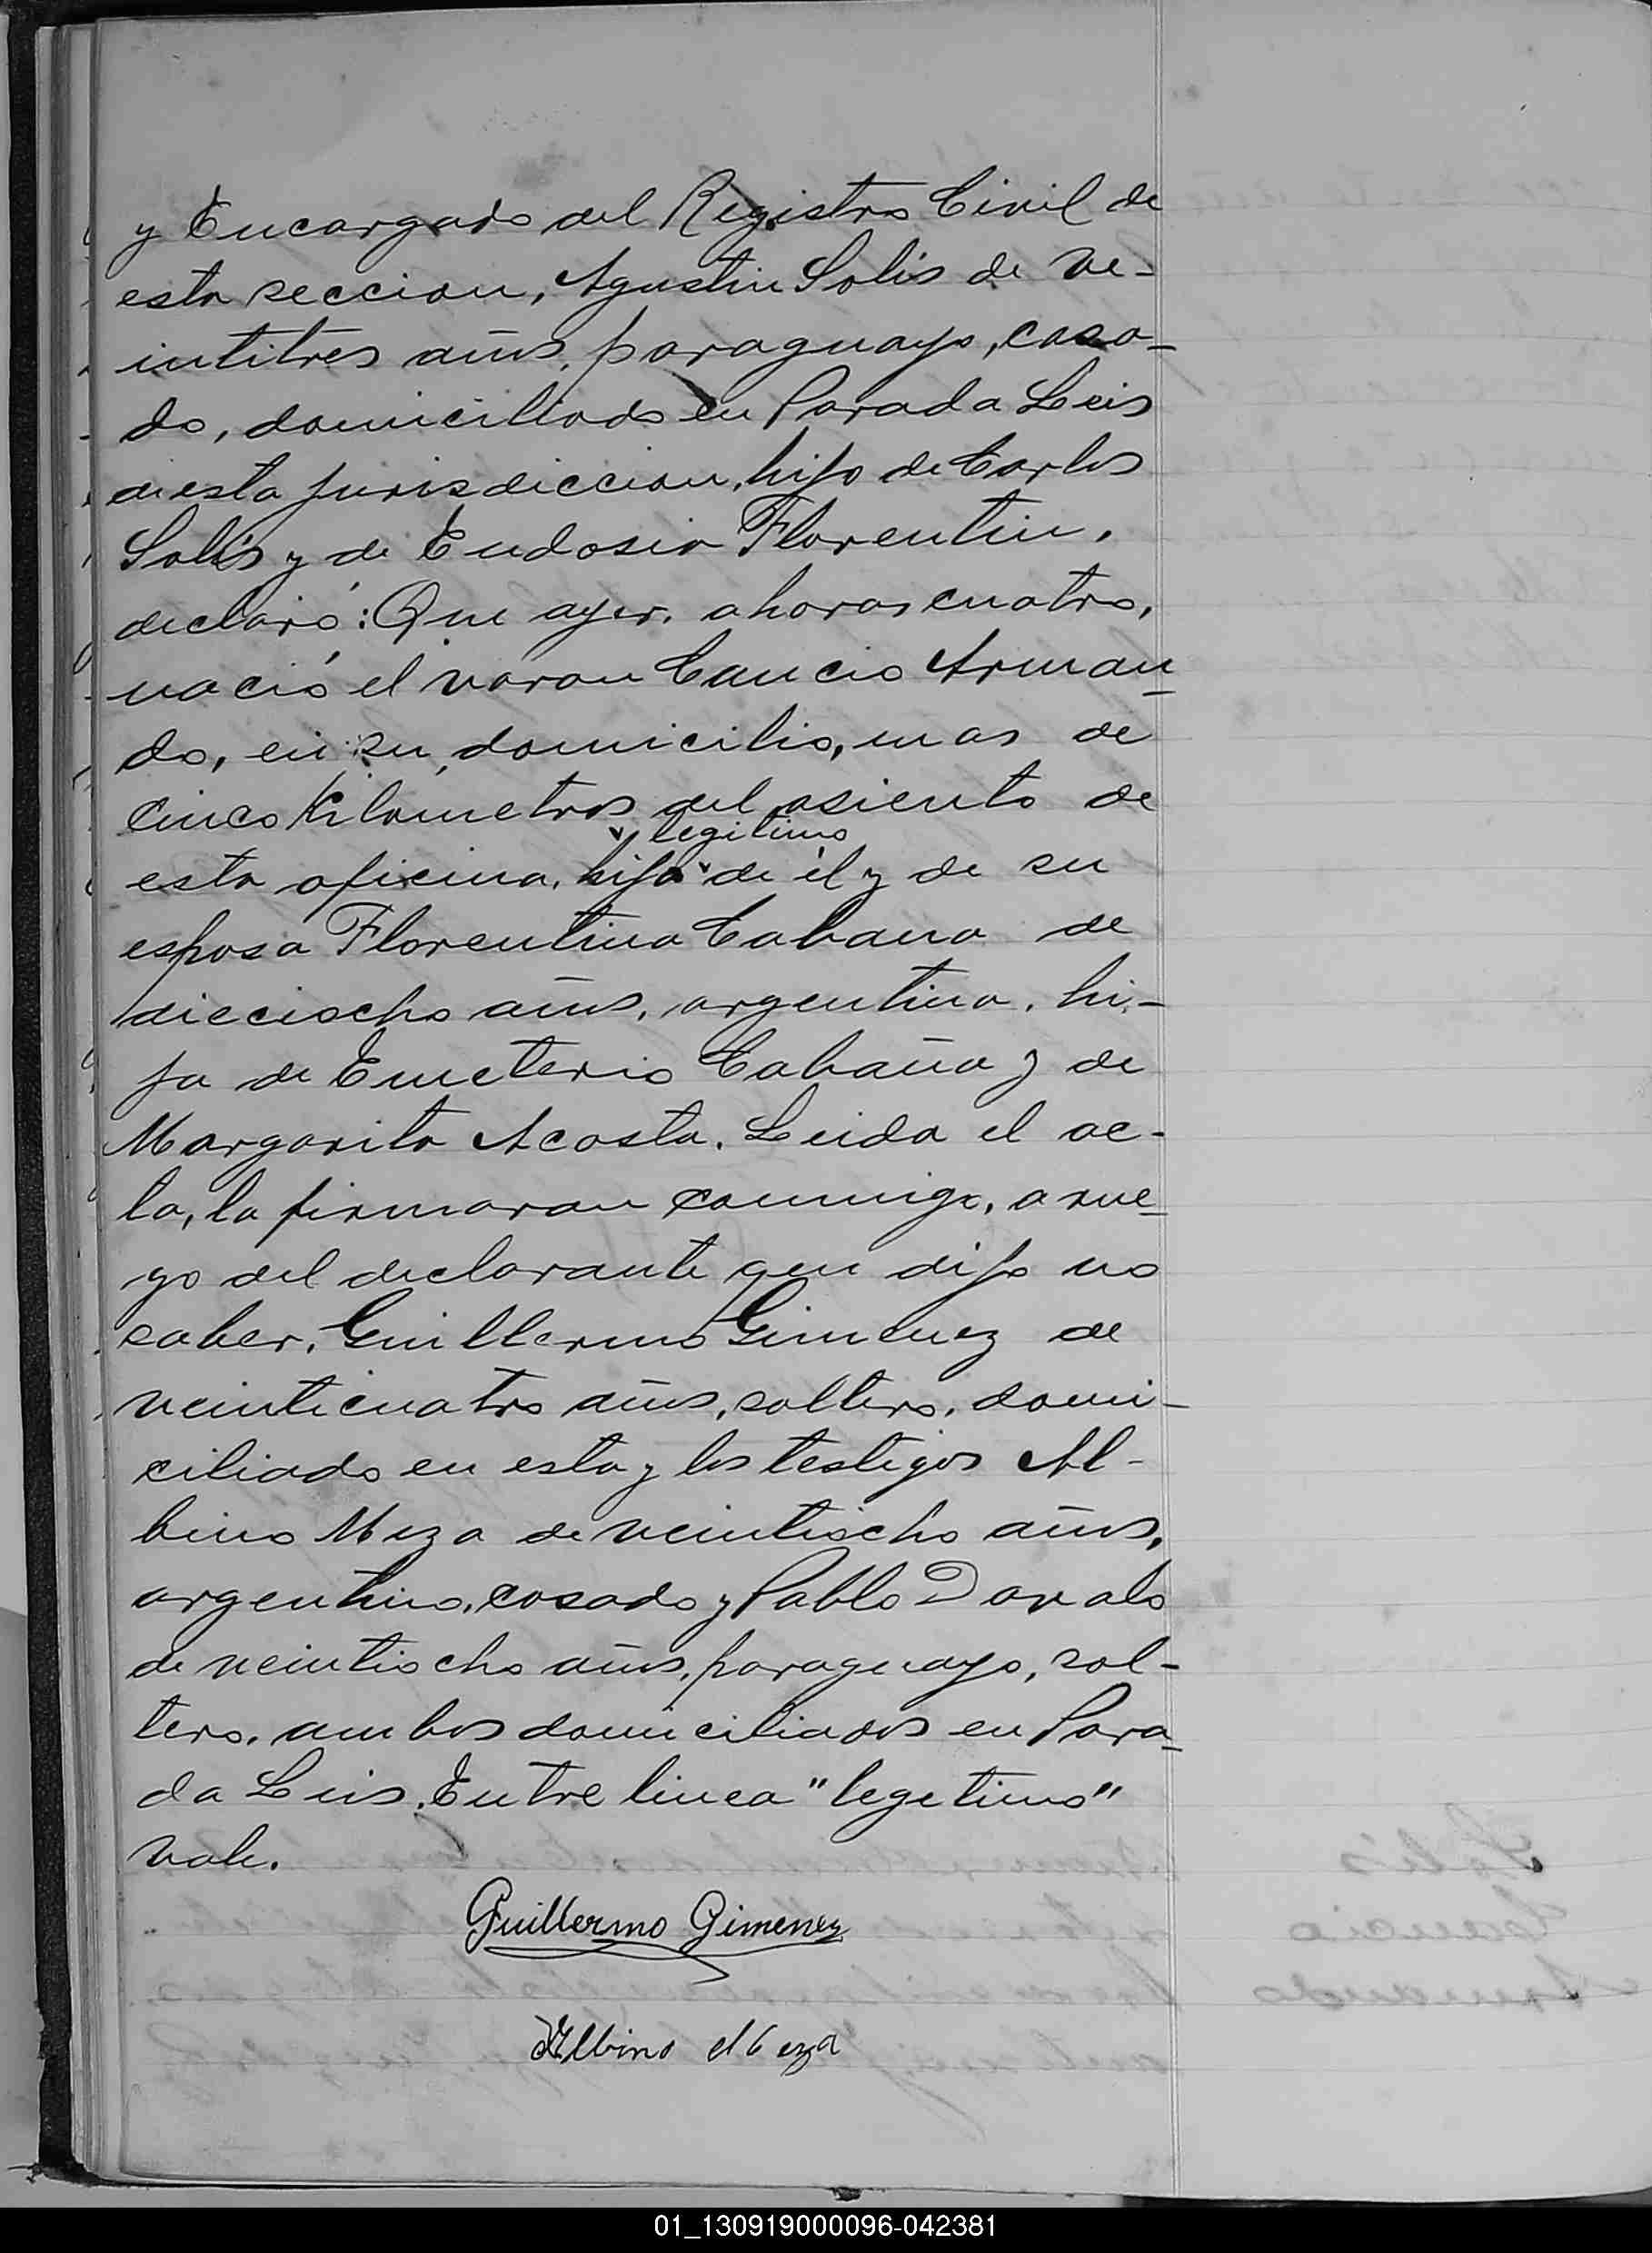 y Encargado del Registro Civil de
esta seccion, Agustin Solis de ve-
intitres años, paraguayo, casa-
do, domiciliado en Parada Leis
de esta jurisdiccion, hijo de Carlos
Solís y de Eudosia Florentin,
declaró: Que ayer, a horas cuatro,
nació el varon Caucio Arman-
do, en su domicilio, mas de
cinco Kilometros del asiento de
legitimo
esta oficina, hijo de él y de su
esposa Florentina Cabana de
dieciocho años, argentina, hi-
ja de Emeterio Cabaña y de
Margarita Acosta. Leida el ac-
ta, la firmaran conmigo, a rue-
go del declarante que dijo no
saber, Guillermo Gimenez de
veinticuatro años, soltero, domi-
ciliado en esta y los testigos Al-
bino Meza de veintiocho años,
argentino, casado y Pablo Davalo
de veintiocho años, paraguayo, sol-
tero, ambos domiciliados en Para-
da Leis. Entre linea "legetimo"
vale.
Guillermo Gimenez
Albino Meza
01_130919000096-042381